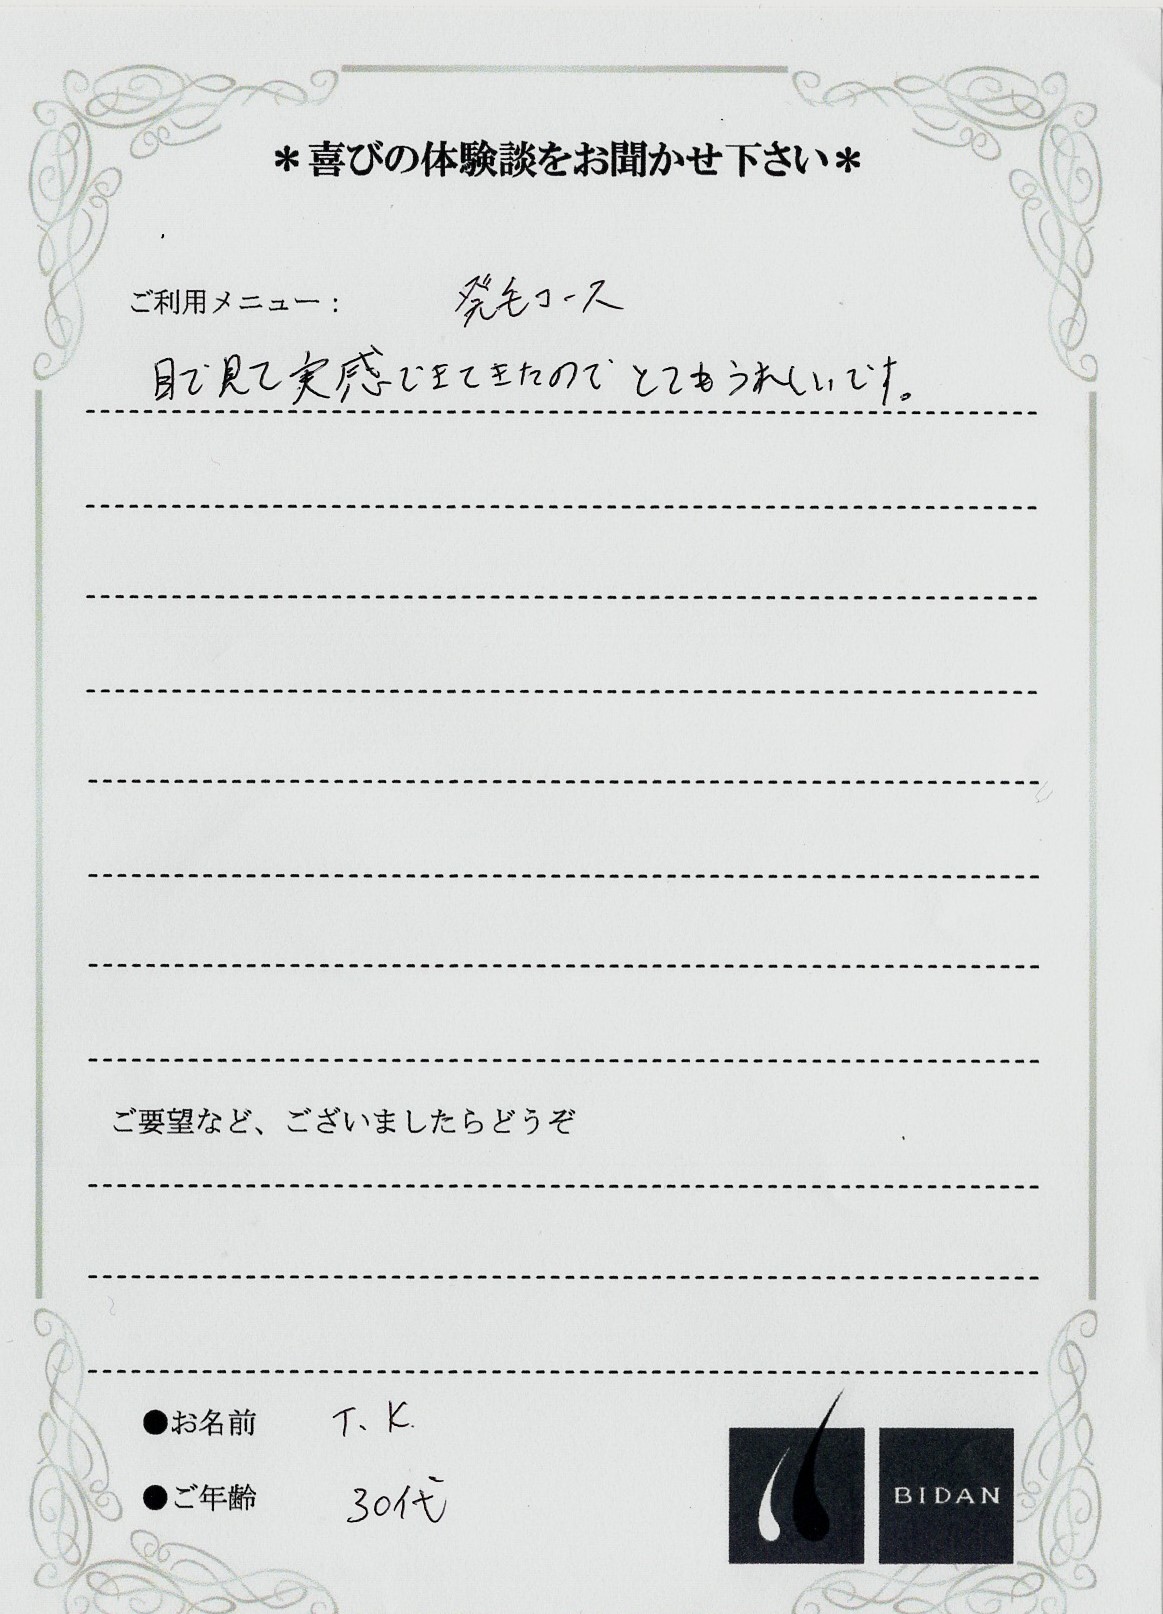 ＊喜びの体験談をお聞かせ下さい＊
ご利用メニュー： 発毛コース
目で見て実感できてきたのでとてもうれしいです。
ご要望など、ございましたらどうぞ
●お名前 T.K.
●ご年齢 30代
BIDAN